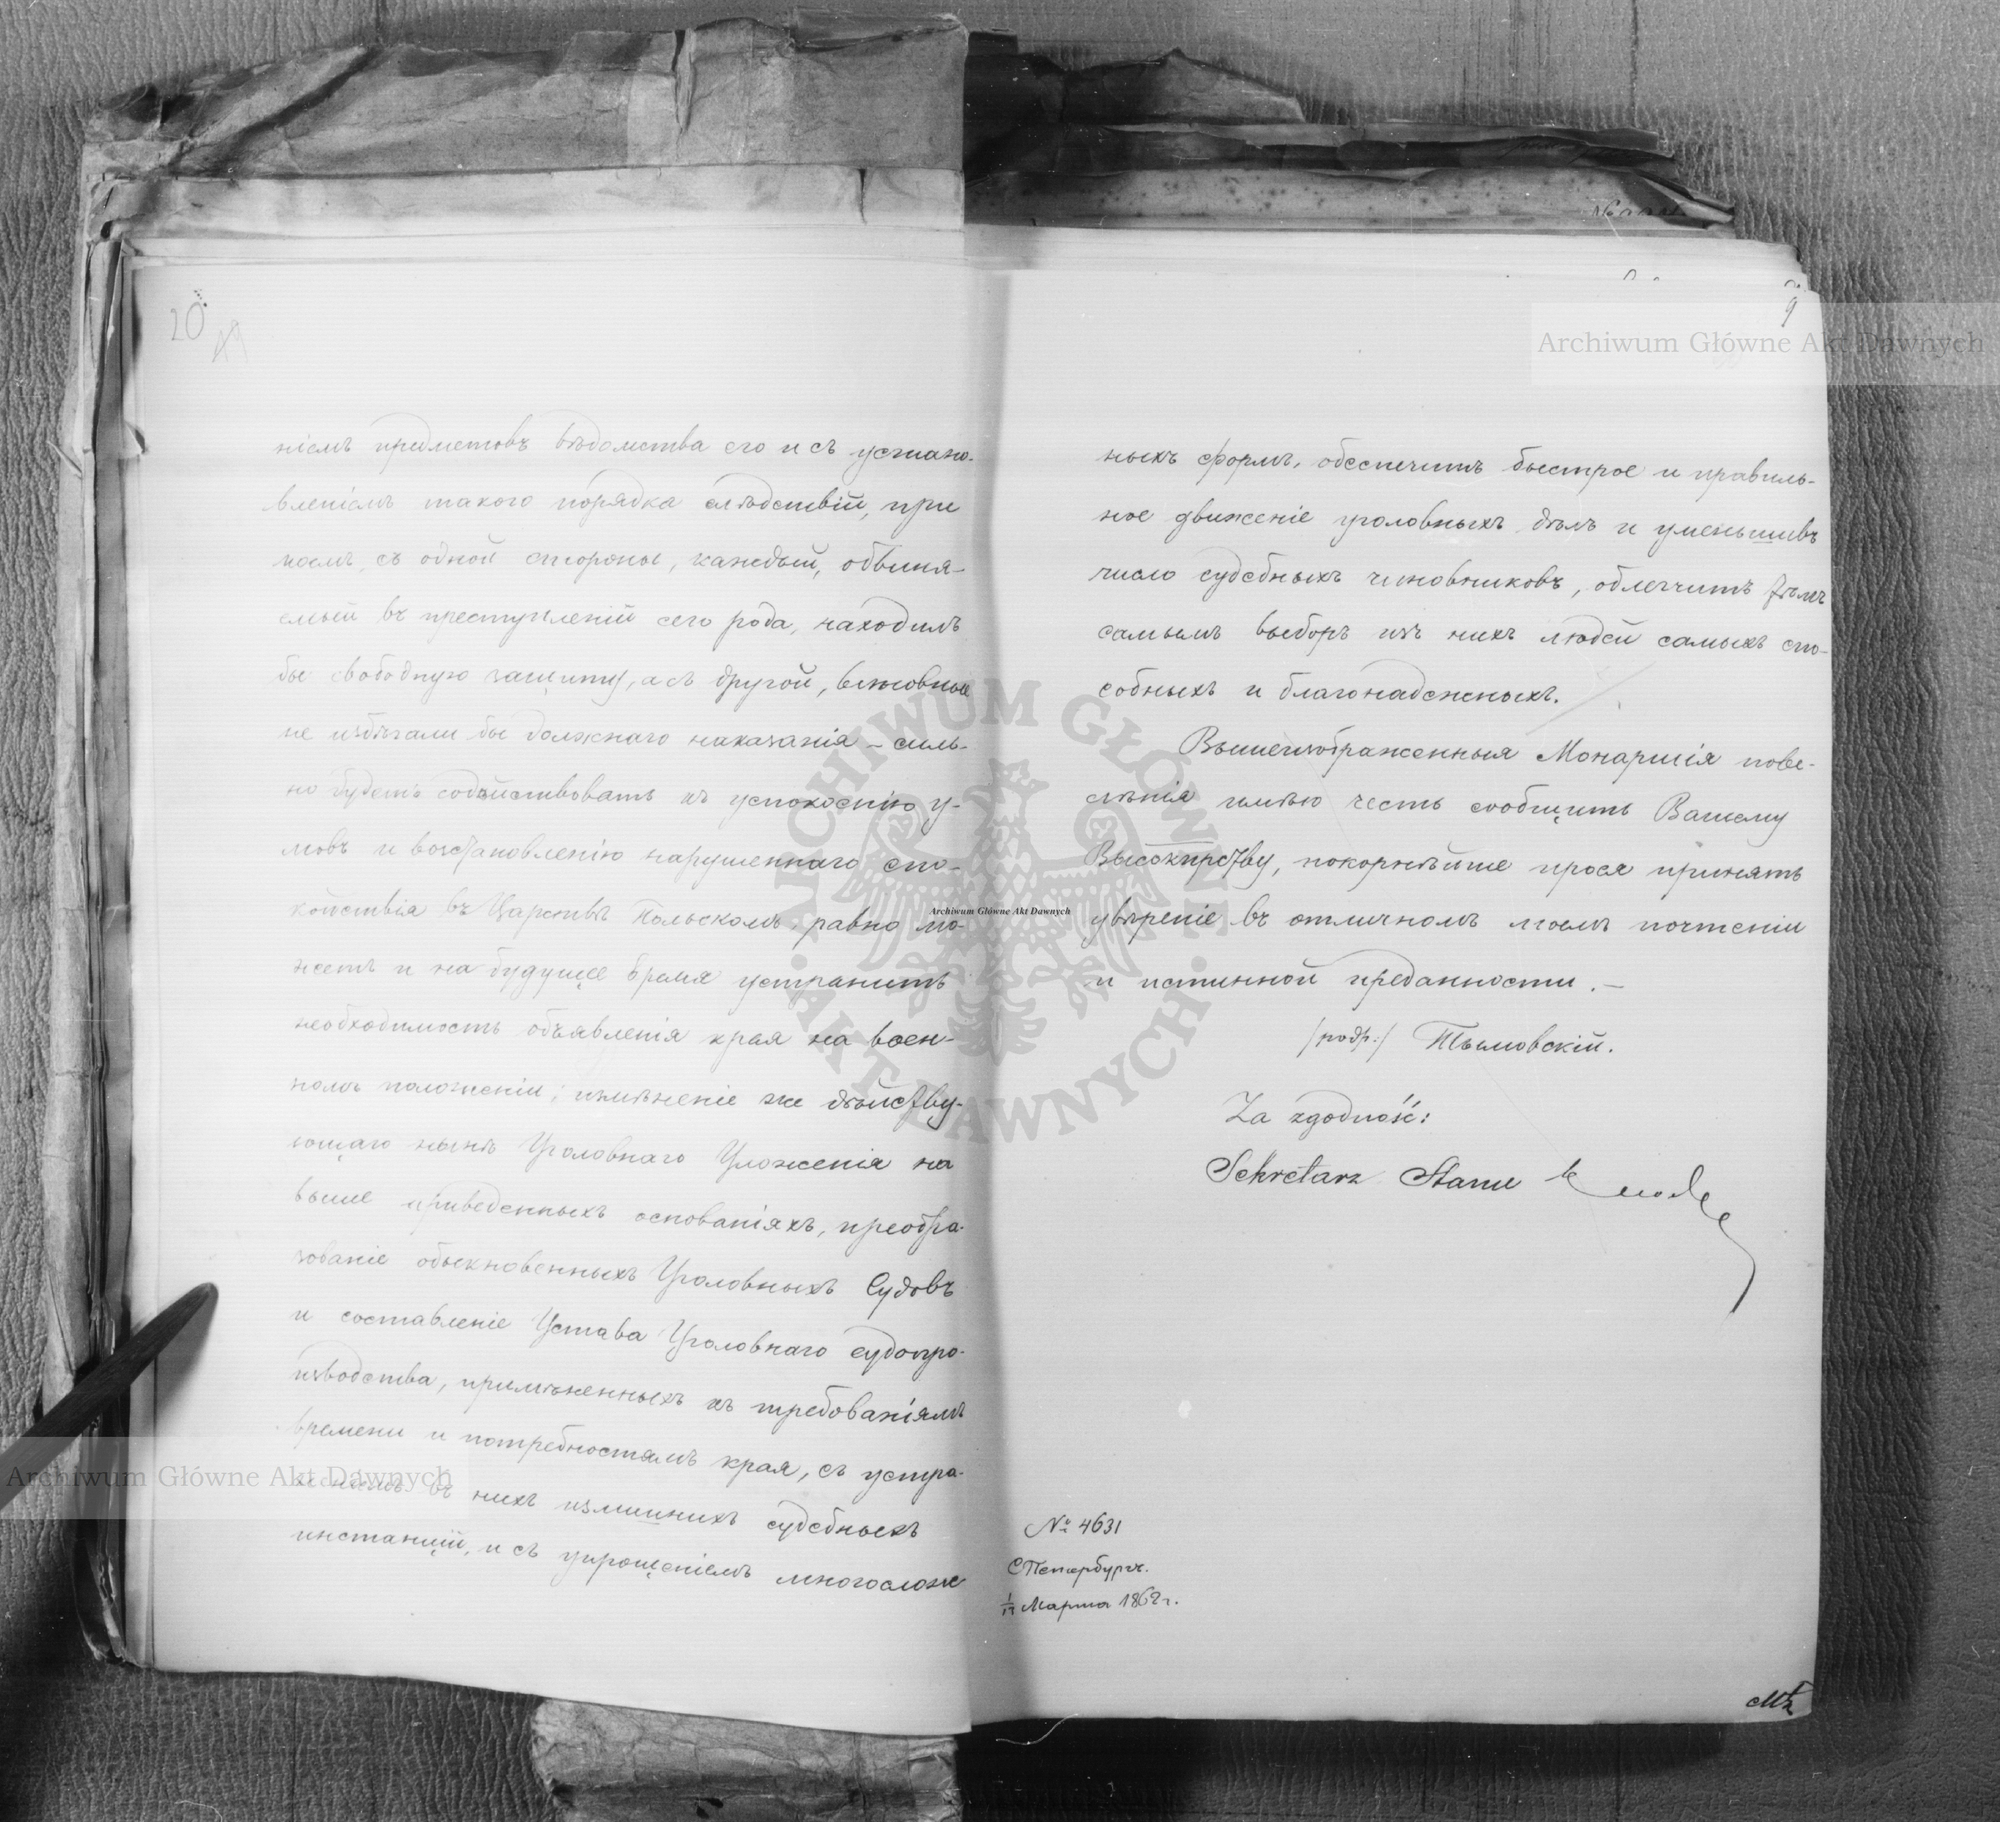 20
ніемъ предметовъ вѣдомства его и съ устано-
вленіемъ такого порядка слѣдствій, при
коемъ, съ одной стороны, каждый, обвиня-
емый въ преступленій сего рода, находилъ
бы свободную защиту, а съ другой, виновные
не избѣгали бы должнаго наказанія – силь-
но будетъ содѣйствовать къ успокоенію у-
мовъ и возстановленію нарушеннаго спо-
койствія въ Царствѣ Польскомъ, равно мо-
жетъ и на будущее время устранить
необходимость объявленія края на воен-
номъ положеніи; измѣненіе же дѣйству-
ющаго нынѣ Уголовнаго Уложенія на
выше приведенныхъ основаніяхъ, преобра-
зованіе обыкновенныхъ Уголовныхъ Судовъ
и составленіе Устава Уголовнаго судопро-
изводства, примѣненныхъ къ требованіямъ
времени и потребностямъ края, съ устра-
неніемъ въ нихъ излишнихъ судебныхъ
инстанцій, и съ упрощеніемъ многослож
9
ныхъ формъ, обеспечитъ быстрое и правиль-
ное движеніе уголовныхъ дѣлъ и уменьшивъ
число судебныхъ чиновниковъ, облегчитъ тѣмъ
самымъ выборъ изъ нихъ людей самыхъ спо-
собныхъ и благонадежныхъ.
Вышеизображенныя Монаршія пове-
лѣнія имѣю честь сообщить Вашему
Высокпрству, покорнѣйше прося принять
увѣреніе въ отличномъ моемъ почтеніи
и истинной преданности. —
/подп:/ Тымовскій.
Za zgodność:
Sekretarz Stanu
№ 4631
СПетербургъ.
Марта 1862 г.
Archiwum Główne Akt Dawnych
Archiwum Główne Akt Dawnych
Archiwum Główne Akt Dawnych
ARCHIWUM GŁÓWNE · AKT DAWNYCH ·